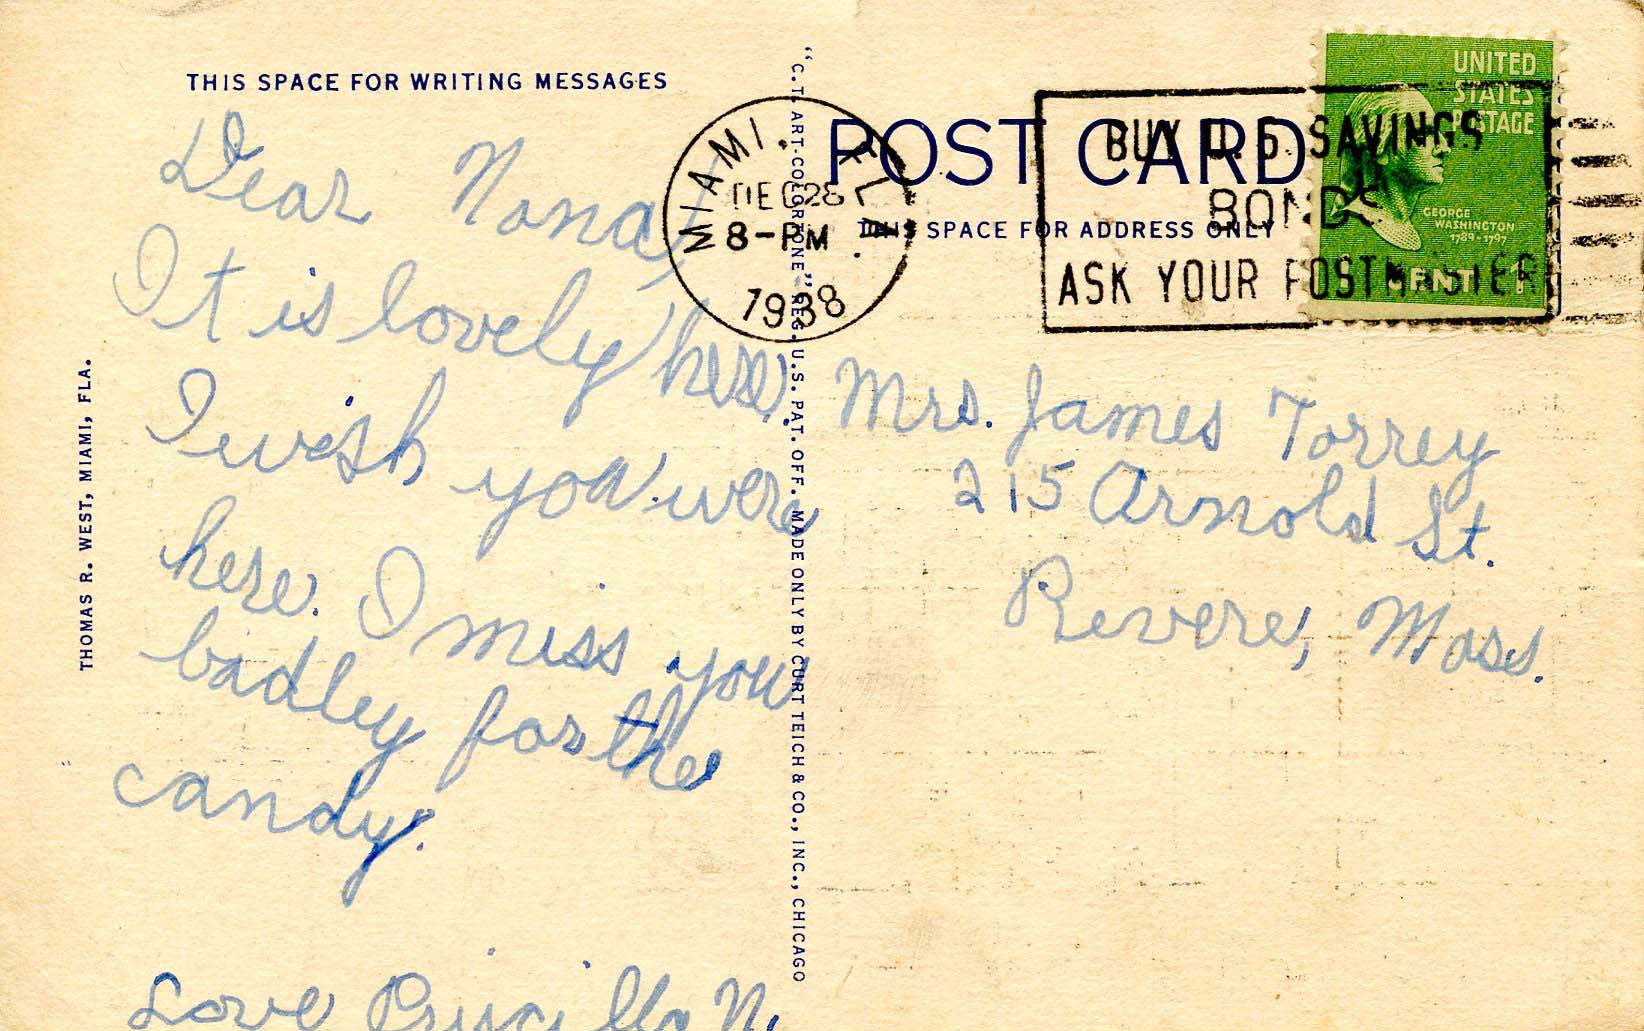 THIS SPACE FOR WRITING MESSAGES
Dear Nona,
It is lovely here.
I wish you were
here. I miss you
badley for the
candy.
Love Priscilla N.
THOMAS R. WEST, MIAMI, FLA.
"C. T. ART-COLORTONE" REG. U.S. PAT. OFF. MADE ONLY BY CURT TEICH & CO., INC., CHICAGO
POST CARD
THIS SPACE FOR ADDRESS ONLY
MIAMI, FLA.
DEC 28
8-PM
1938
BUY U.S. SAVINGS
BONDS
ASK YOUR POSTMASTER
UNITED
STATES
POSTAGE
GEORGE
WASHINGTON
1789-1797
1 CENT 1
Mrs. James Torrey
215 Arnold St.
Revere, Mass.